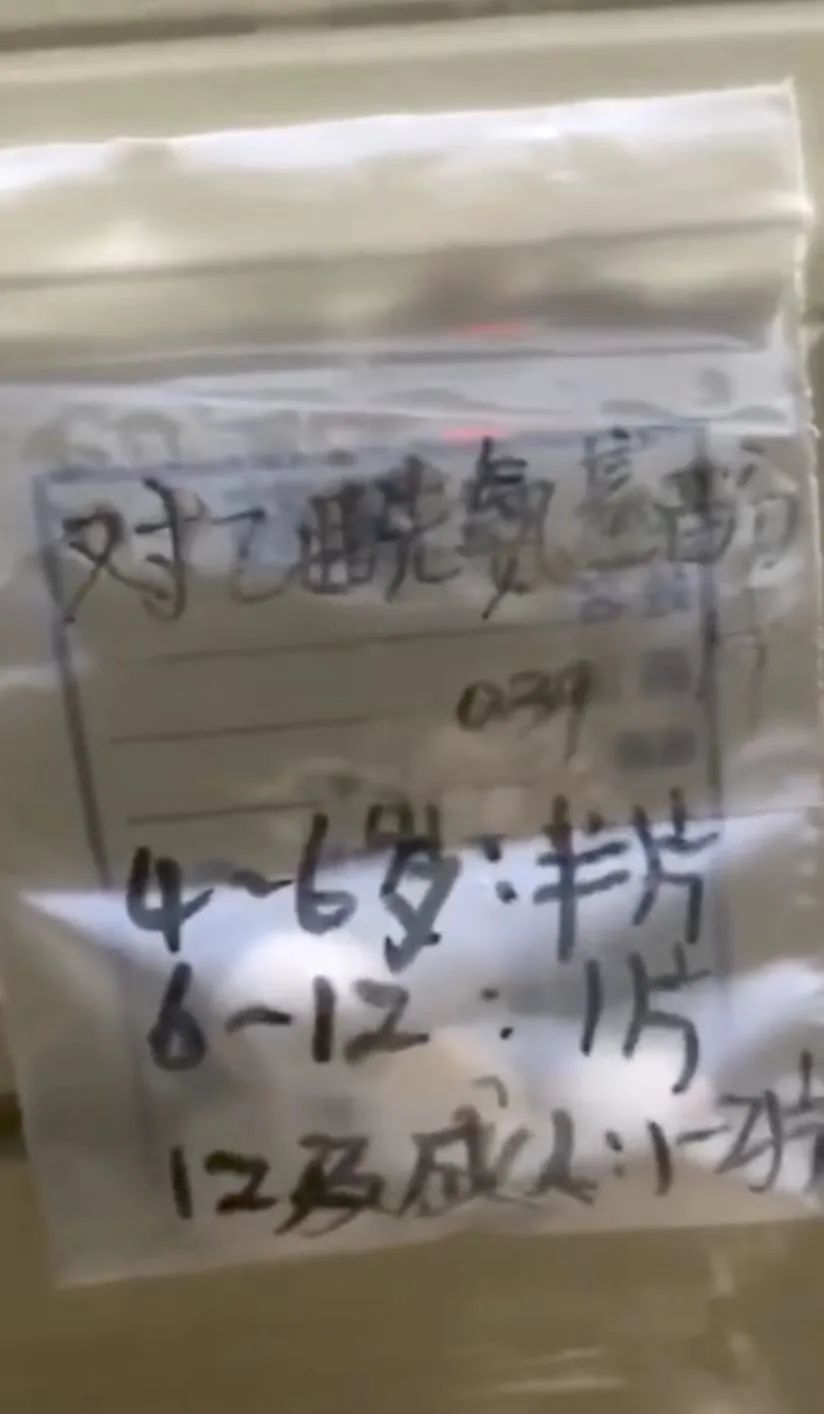 对乙酰氨基酚
0.3g
4~6岁:半片
6~12:1片
12及成人:1-2片